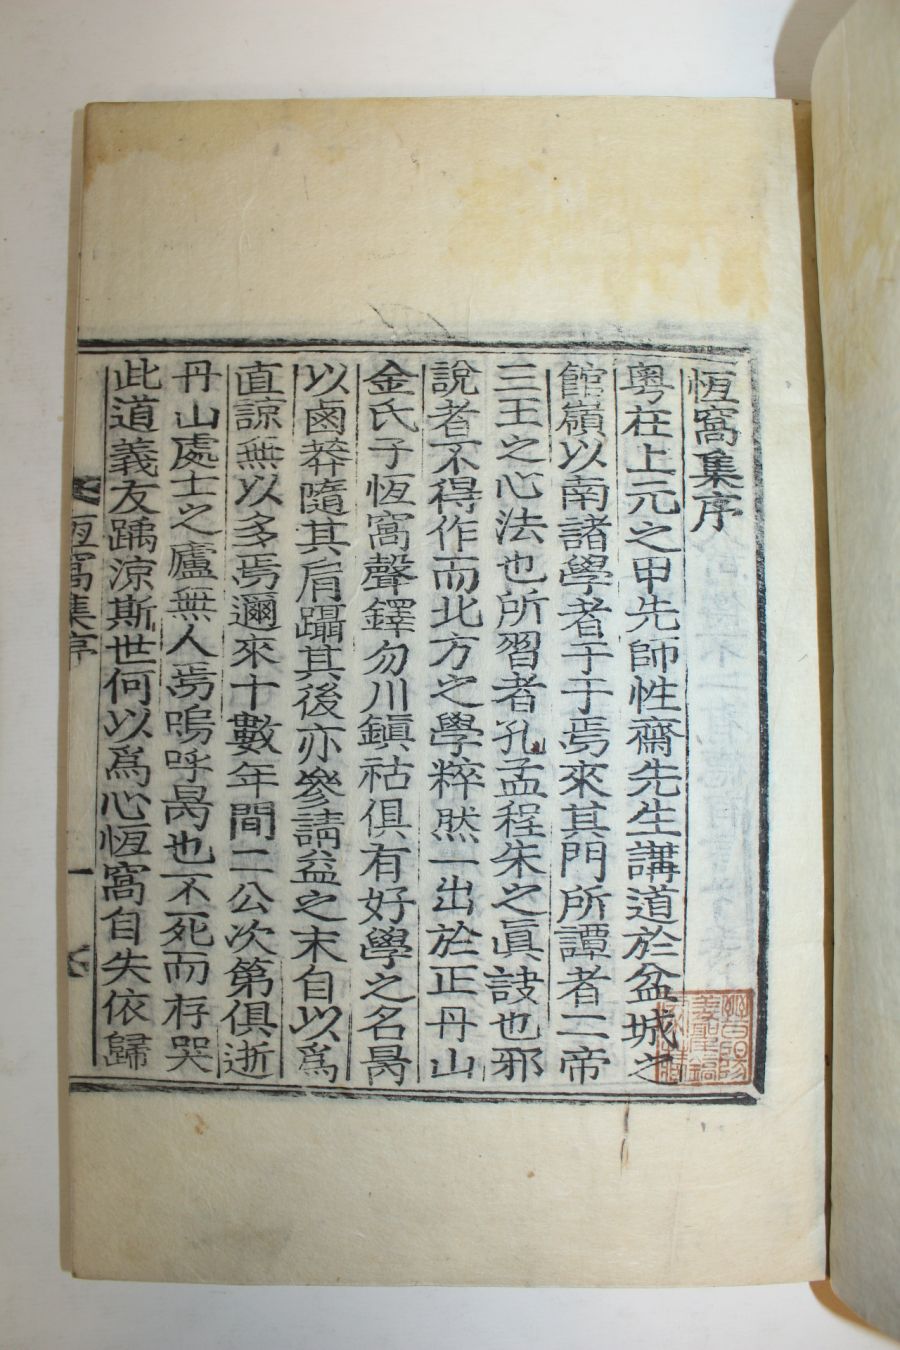 恆窩集序
粤在上元之甲先師性齋先生講道於盆城之
館嶺以南諸學者于于焉來其門所譚者二帝
三王之心法也所習者孔孟程朱之眞訣也邪
說者不得作而此方之學粹然一出於正丹山
金氏子恆窩聲鐸勿川鎭祜俱有好學之名昺
以鹵莽隨其肩躡其後亦參請益之末自以爲
直諒無以多焉邇來十數年間二公次第俱逝
丹山處士之廬無人焉嗚呼昺也不死而存哭
此道義友踽凉斯世何以爲心恆窩自失依歸
恆窩集序
一